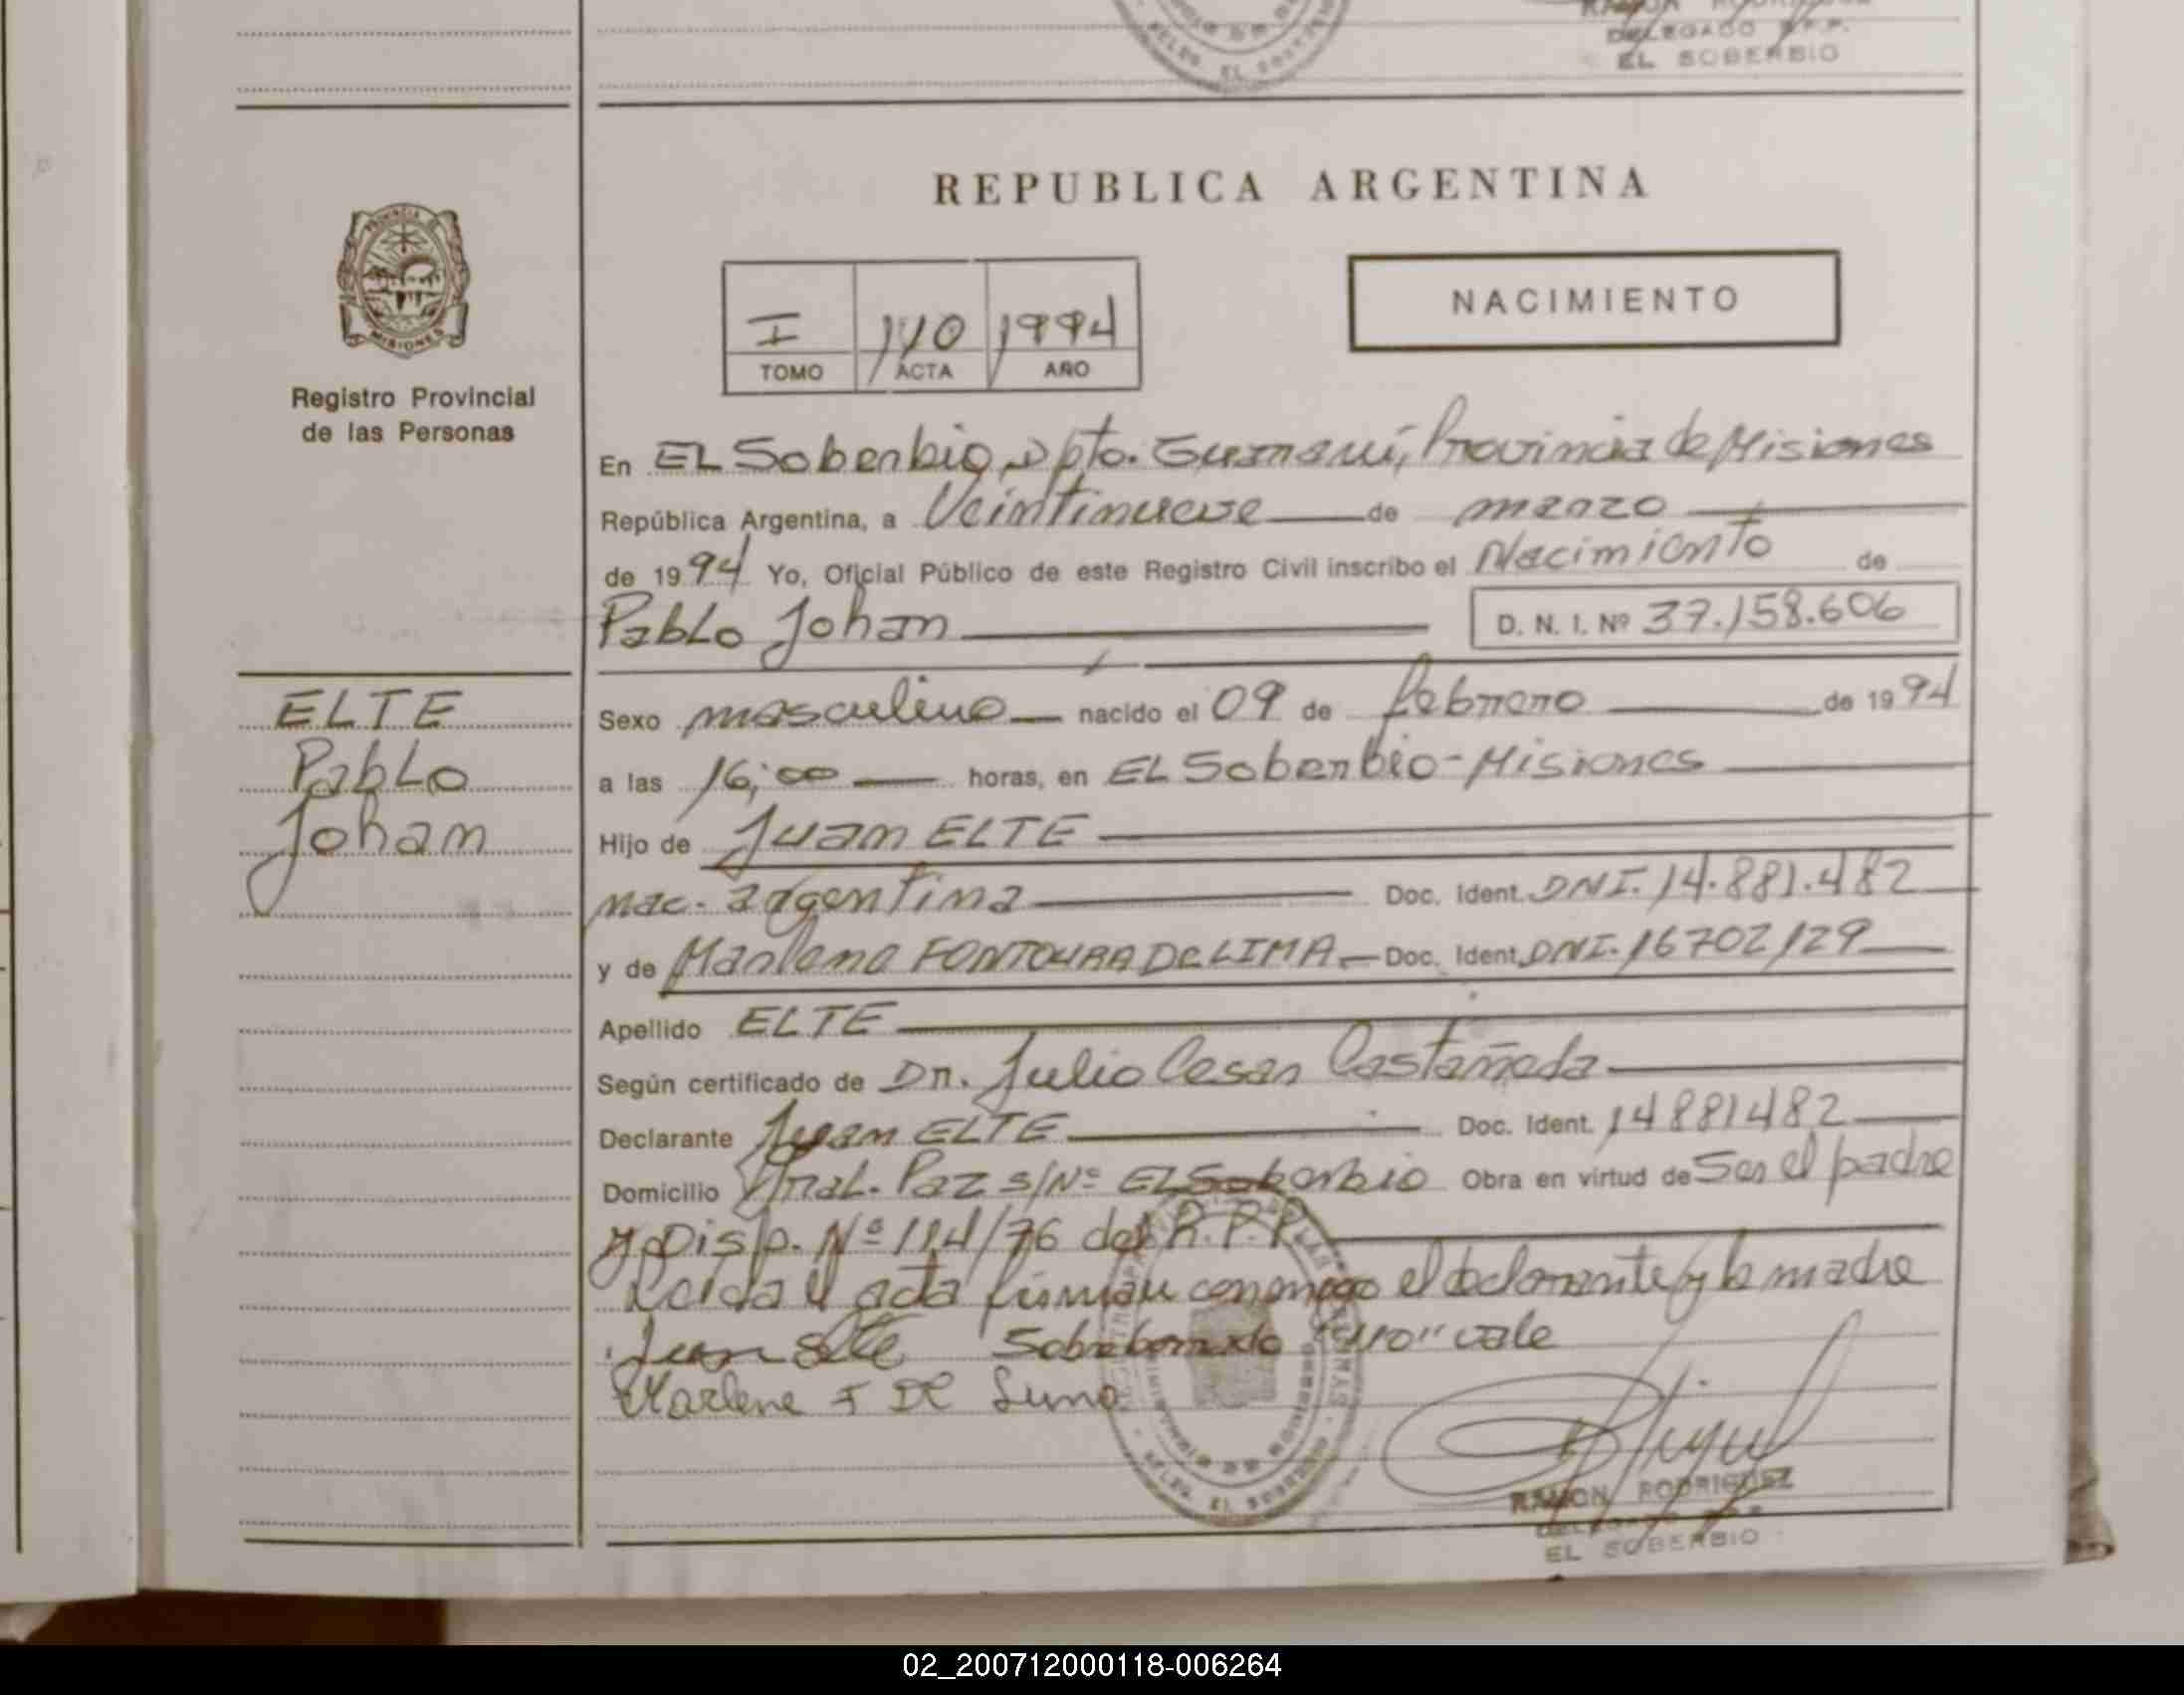 RAMON RODRIGUEZ
DELEGADO R.P.P.
EL SOBERBIO
REPUBLICA ARGENTINA
PROVINCIA DE
MISIONES
NACIMIENTO
I 110 1994
TOMO ACTA AÑO
Registro Provincial
de las Personas
En EL Soberbio, Dpto. Guaraní, Provincia de Misiones
República Argentina, a Veintinueve de marzo
de 1994 Yo, Oficial Público de este Registro Civil inscribo el Nacimiento de
Pablo Johan D. N. I. Nº 37.158.606
ELTE
Pablo
Johan
Sexo masculino nacido el 09 de febrero de 1994
a las 16,00 horas, en EL Soberbio - Misiones
Hijo de Juan ELTE
nac. argentina Doc. Ident. DNI. 14.881.482
y de Marlene FONTOURA De LIMA Doc. Ident. DNI. 16702129
Apellido ELTE
Según certificado de Dr. Julio Cesar Castañeda
Declarante Juan ELTE Doc. Ident. 14881482
Domicilio Gral. Paz s/Nº EL Soberbio Obra en virtud de Ser el padre
y Disp. Nº 114/76 del R.P.P.
Leida el acta firman conmigo el declarante y la madre
Juan Elte Sobreborrado "110" vale
Marlene F De Lima
RAMON RODRIGUEZ
DELEGADO R.P.P.
EL SOBERBIO
02_200712000118-006264